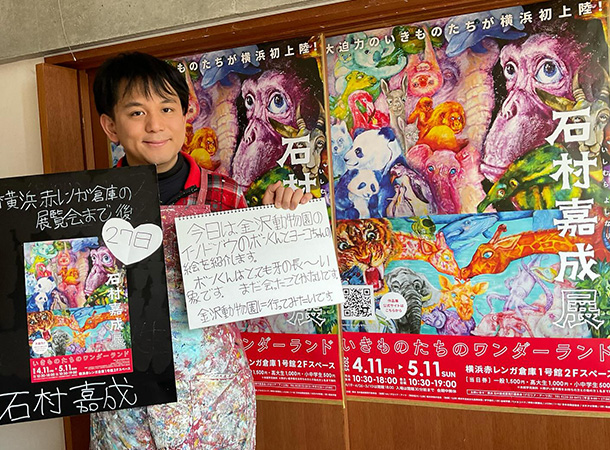 横浜赤レンガ倉庫の
展覧会まで後
27日
石村嘉成展
いきものたちのワンダーランド
4.11 FRI 5.11 SUN
石村嘉成
今日は金沢動物園の
インドゾウのボンくんとヨーコちゃんの
絵を紹介します。
ボンくんはとても牙の長〜い
象です。まだ会ったことがないです
金沢動物園に行ってみたいです
いきものたちが横浜初上陸!
石村嘉成展
ワンダーランド
5.11 SUN
10:30-19:00
横浜赤レンガ倉庫1号館2Fスペース
大迫力のいきものたちが横浜初上陸!
石村嘉成展
いきものたちのワンダーランド
2025
4.11 FRI 5.11 SUN
10:30-18:00
10:30-19:00
横浜赤レンガ倉庫1号館2Fスペース
[当日券]一般1,500円・高大生1,000円・小中学生500円